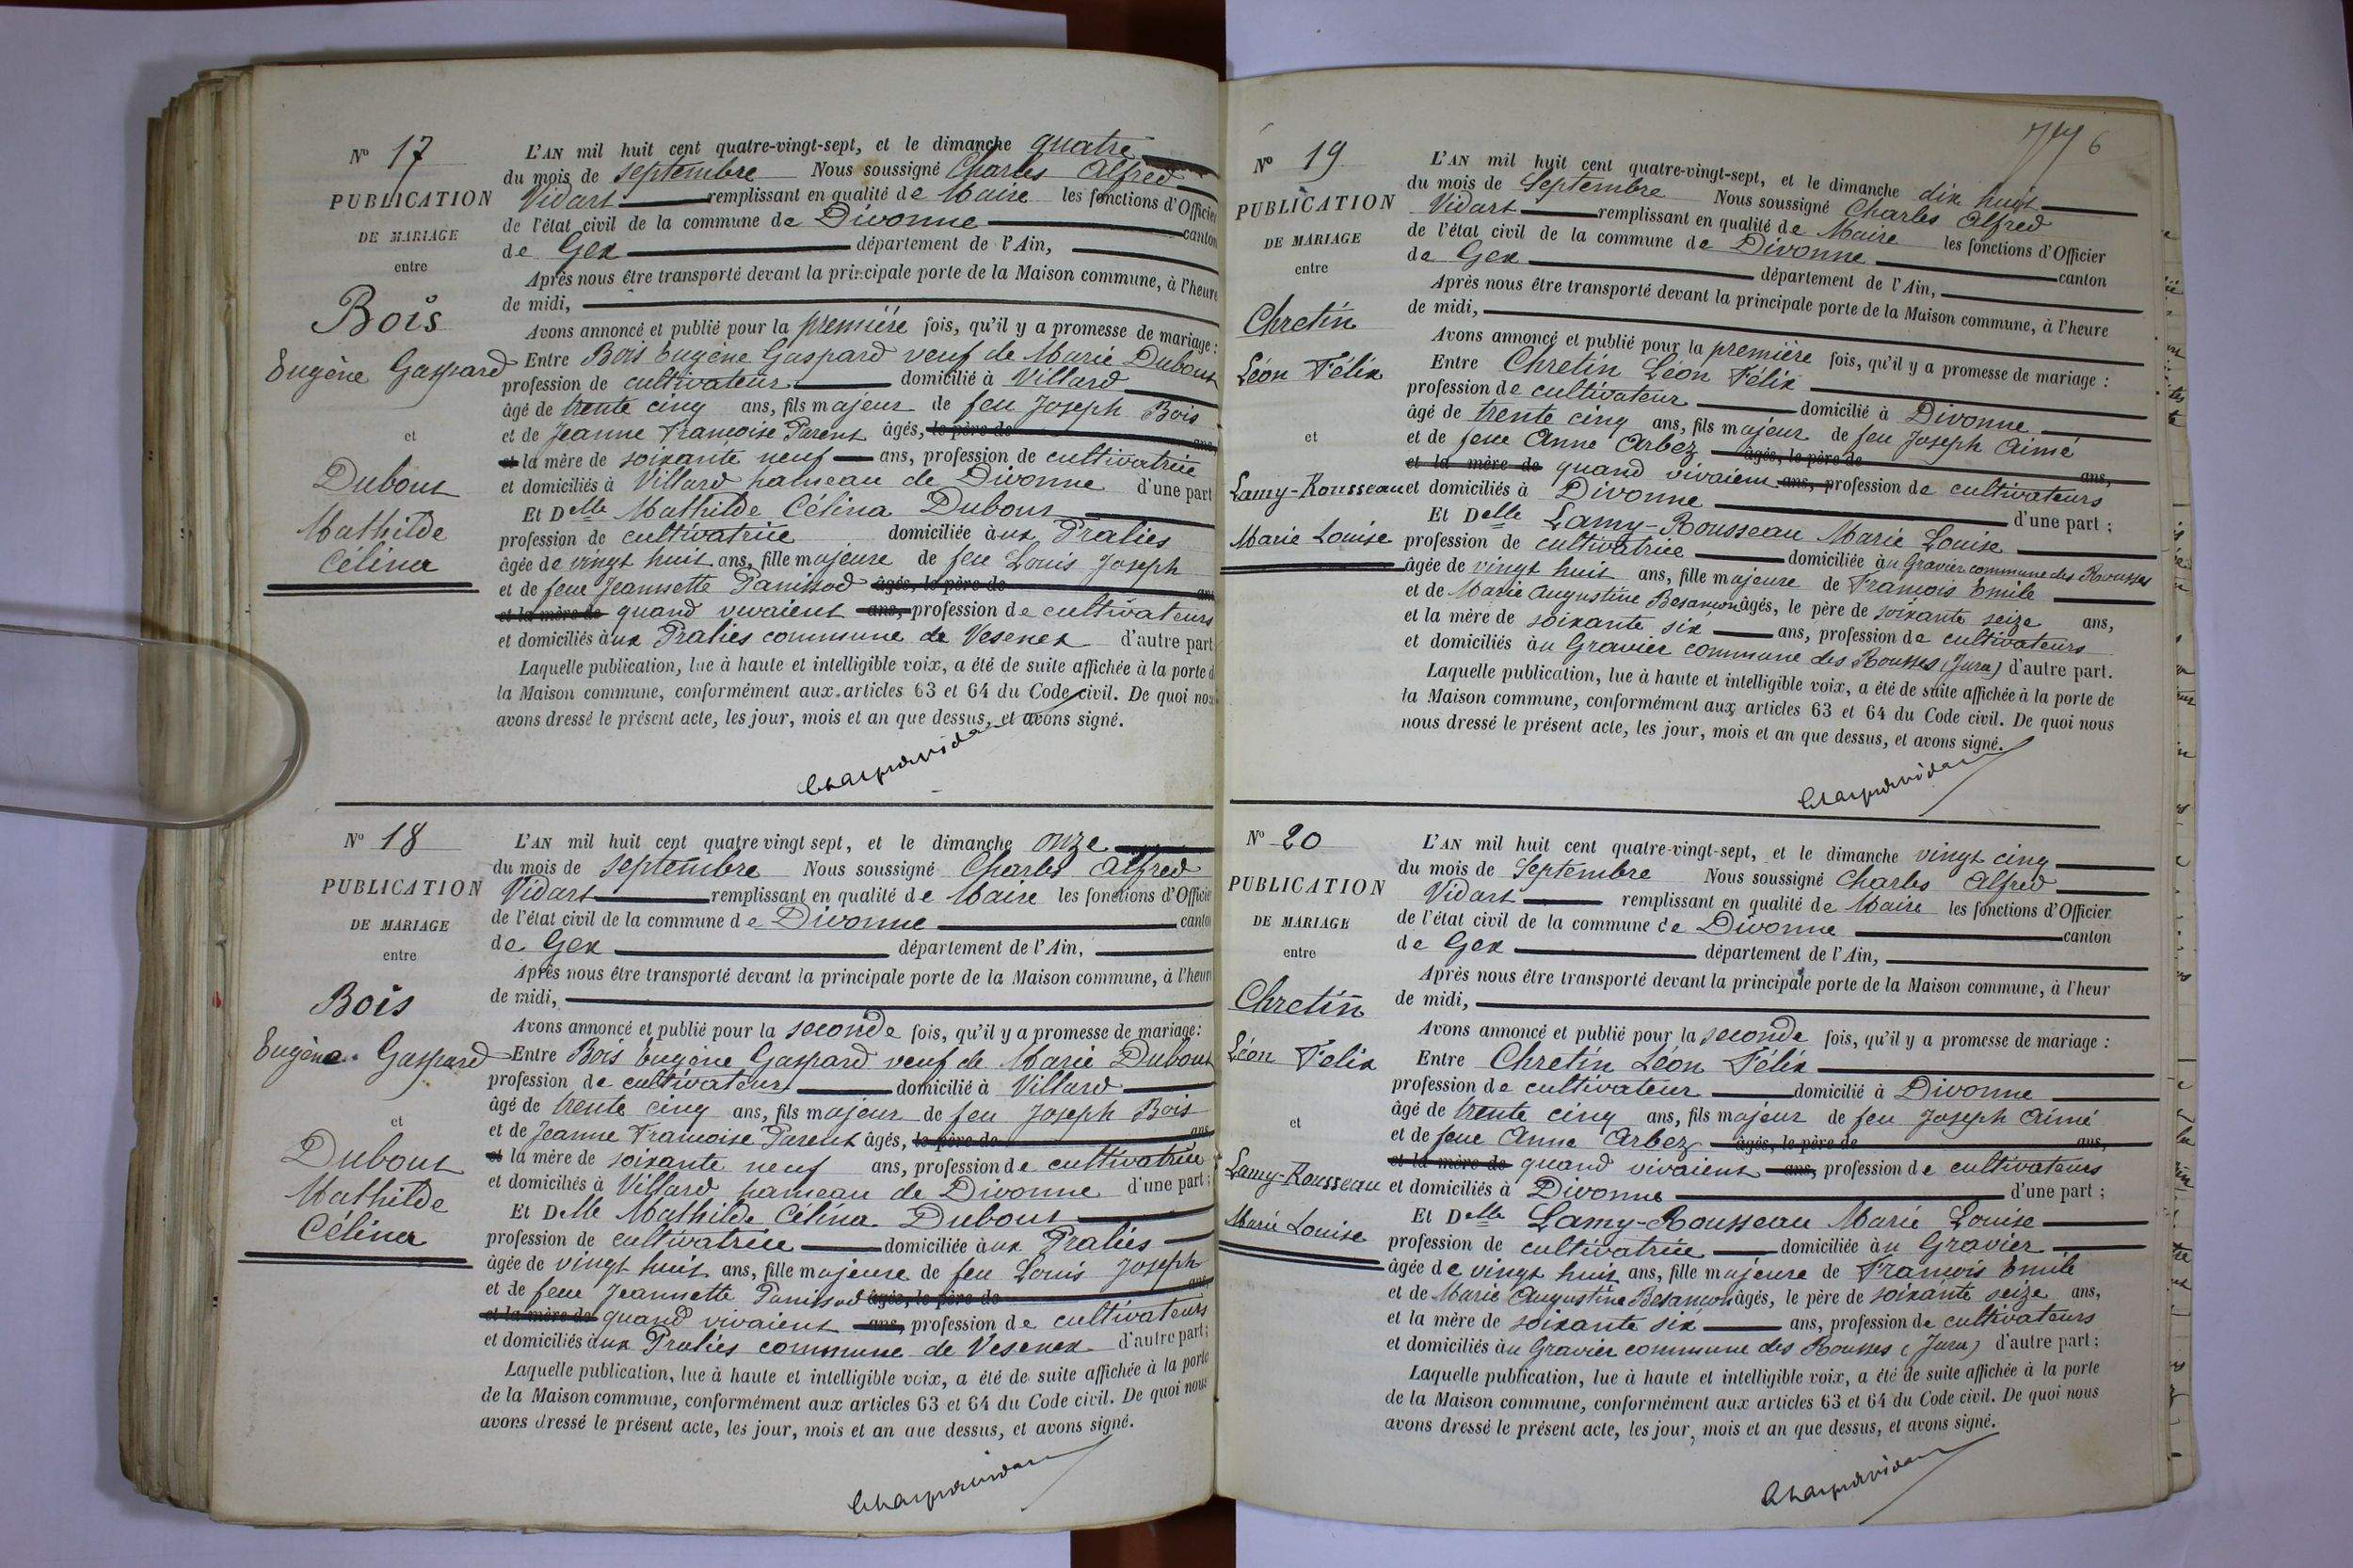 N° 17
PUBLICATION
DE MARIAGE
entre
Bois
Eugène Gaspard
et
Dubout
Mathilde
Célina
L'AN mil huit cent quatre-vingt-sept, et le dimanche quatre
du mois de septembre Nous soussigné Charles Alfred
Vidart remplissant en qualité de Maire les fonctions d'Officier
de l'état civil de la commune de Divonne canton
de Gex département de l'Ain,
Après nous être transporté devant la principale porte de la Maison commune, à l'heure
de midi,
Avons annoncé et publié pour la première fois, qu'il y a promesse de mariage :
Entre Bois Eugène Gaspard veuf de Marie Dubout
profession de cultivateur domicilié à Villard
âgé de trente cinq ans, fils majeur de feu Joseph Bois
et de Jeanne Françoise Parent âgés, le père de ans,
et la mère de soixante neuf ans, profession de cultivatrice
et domiciliés à Villard hameau de Divonne d'une part
Et Delle Mathilde Célina Dubout
profession de cultivatrice domiciliée aux Praliés
âgée de vingt huit ans, fille majeure de feu Louis Joseph
et de feue Jeannette Panissod âgés, le père de ans
et la mère de quand vivaient ans, profession de cultivateurs
et domiciliés aux Praliés commune de Vesenex d'autre part
Laquelle publication, lue à haute et intelligible voix, a été de suite affichée à la porte d
la Maison commune, conformément aux articles 63 et 64 du Code civil. De quoi nou
avons dressé le présent acte, les jour, mois et an que dessus, et avons signé.
N° 18
PUBLICATION
DE MARIAGE
entre
Bois
Eugène Gaspard
et
Dubout
Mathilde
Célina
L'AN mil huit cent quatre vingt sept, et le dimanche onze
du mois de septembre Nous soussigné Charles Alfred
Vidart remplissant en qualité de Maire les fonctions d'Officie
de l'état civil de la commune de Divonne canto
de Gex département de l'Ain,
Après nous être transporté devant la principale porte de la Maison commune, à l'heur
de midi,
Avons annoncé et publié pour la seconde fois, qu'il y a promesse de mariage:
Entre Bois Eugène Gaspard veuf de Marie Dubout
profession de cultivateur domicilié à Villard
âgé de trente cinq ans, fils majeur de feu Joseph Bois
et de Jeanne Françoise Parent âgés, le père de ans
et la mère de soixante neuf ans, profession de cultivatrice
et domiciliés à Villard hameau de Divonne d'une part;
Et Delle Mathilde Célina Dubout
profession de cultivatrice domiciliée aux Praliés
âgée de vingt huit ans, fille majeure de feu Louis Joseph
et de feue Jeannette Panissod âgés, le père de ans,
et la mère de quand vivaient ans, profession de cultivateurs
et domiciliés aux Praliés commune de Vesenex d'autre part;
Laquelle publication, lue à haute et intelligible voix, a été de suite affichée à la porte
de la Maison commune, conformément aux articles 63 et 64 du Code civil. De quoi nous
avons dressé le présent acte, les jour, mois et an que dessus, et avons signé.
6
N° 19
PUBLICATION
DE MARIAGE
entre
Chretin
Léon Félix
et
Lamy-Rousseau
Marie Louise
L'AN mil huit cent quatre-vingt-sept, et le dimanche dix huit
du mois de Septembre Nous soussigné Charles Alfred
Vidart remplissant en qualité de Maire les fonctions d'Officier
de l'état civil de la commune de Divonne canton
de Gex département de l'Ain,
Après nous être transporté devant la principale porte de la Maison commune, à l'heure
de midi,
Avons annoncé et publié pour la première fois, qu'il y a promesse de mariage :
Entre Chretin Léon Félix
profession de cultivateur domicilié à Divonne
âgé de trente cinq ans, fils majeur de feu Joseph Aimé
et de feue Anne Arbez âgés, le père de ans,
et la mère de quand vivaient ans, profession de cultivateurs
et domiciliés à Divonne d'une part ;
Et Delle Lamy-Rousseau Marie Louise
profession de cultivatrice domiciliée au Gravier commune des Rousses
âgée de vingt huit ans, fille majeure de François Emile
et de Marie Augustine Besançon âgés, le père de soixante seize ans,
et la mère de soixante six ans, profession de cultivateurs
et domiciliés au Gravier commune des Rousses (Jura) d'autre part.
Laquelle publication, lue à haute et intelligible voix, a été de suite affichée à la porte de
la Maison commune, conformément aux articles 63 et 64 du Code civil. De quoi nous
nous dressé le présent acte, les jour, mois et an que dessus, et avons signé.
N° 20
PUBLICATION
DE MARIAGE
entre
Chretin
Léon Felix
et
Lamy-Rousseau
Marie Louise
L'AN mil huit cent quatre-vingt-sept, et le dimanche vingt cinq
du mois de Septembre Nous soussigné Charles Alfred
Vidart remplissant en qualité de Maire les fonctions d'Officier
de l'état civil de la commune de Divonne canton
de Gex département de l'Ain,
Après nous être transporté devant la principale porte de la Maison commune, à l'heur
de midi,
Avons annoncé et publié pour la seconde fois, qu'il y a promesse de mariage :
Entre Chretin Léon Félix
profession de cultivateur domicilié à Divonne
âgé de trente cinq ans, fils majeur de feu Joseph Aimé
et de feue Anne Arbez âgés, le père de ans,
et la mère de quand vivaient ans, profession de cultivateurs
et domiciliés à Divonne d'une part ;
Et Delle Lamy-Rousseau Marie Louise
profession de cultivatrice domiciliée au Gravier
âgée de vingt huit ans, fille majeure de François Emile
et de Marie Augustine Besançon âgés, le père de soixante seize ans,
et la mère de soixante six ans, profession de cultivateurs
et domiciliés au Gravier commune des Rousses (Jura) d'autre part ;
Laquelle publication, lue à haute et intelligible voix, a été de suite affichée à la porte
de la Maison commune, conformément aux articles 63 et 64 du Code civil. De quoi nous
avons dressé le présent acte, les jour, mois et an que dessus, et avons signé.